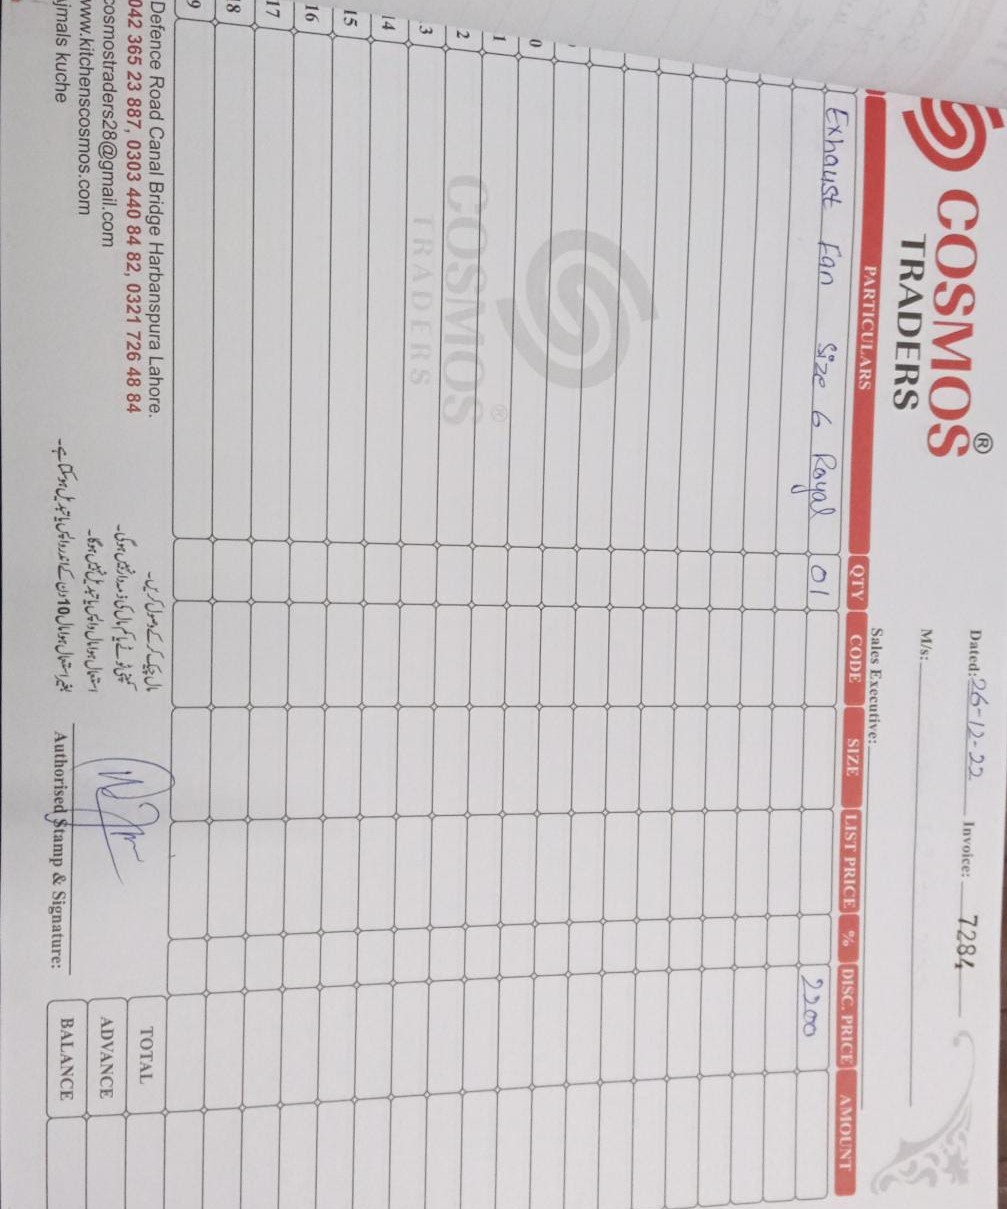 COSMOS ®
TRADERS
Dated: 26-12-22 Invoice: 7284
M/s:
Sales Executive:
PARTICULARS QTY CODE SIZE LIST PRICE % DISC. PRICE AMOUNT
Exhaust Fan Size 6 Royal 01 2200
COSMOS ®
TRADERS
0
1
2
3
14
15
16
17
8
9
Defence Road Canal Bridge Harbanspura Lahore.
042 365 23 887, 0303 440 84 82, 0321 726 48 84
cosmostraders28@gmail.com
www.kitchenscosmos.com
jmals kuche
مال چیک کر کے وصول کریں۔
کمپنی ٹوٹے یا کم مال کی ذمہ دار نہیں ہوگی۔
استعمال ہوا مال واپس یا تبدیل نہیں ہوگا۔
بغیر استعمال ہوا مال 10 دن کے اندر واپس یا تبدیل ہوسکتا ہے۔
Authorised Stamp & Signature:
TOTAL
ADVANCE
BALANCE